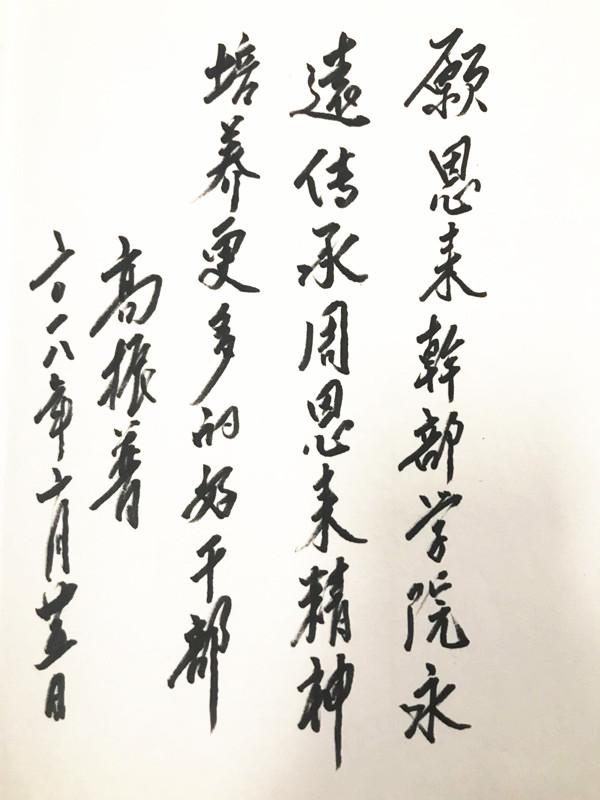 愿恩来幹部学院永
遠传承周恩来精神
培养更多的好干部
高振普
二〇一八年六月廿五日